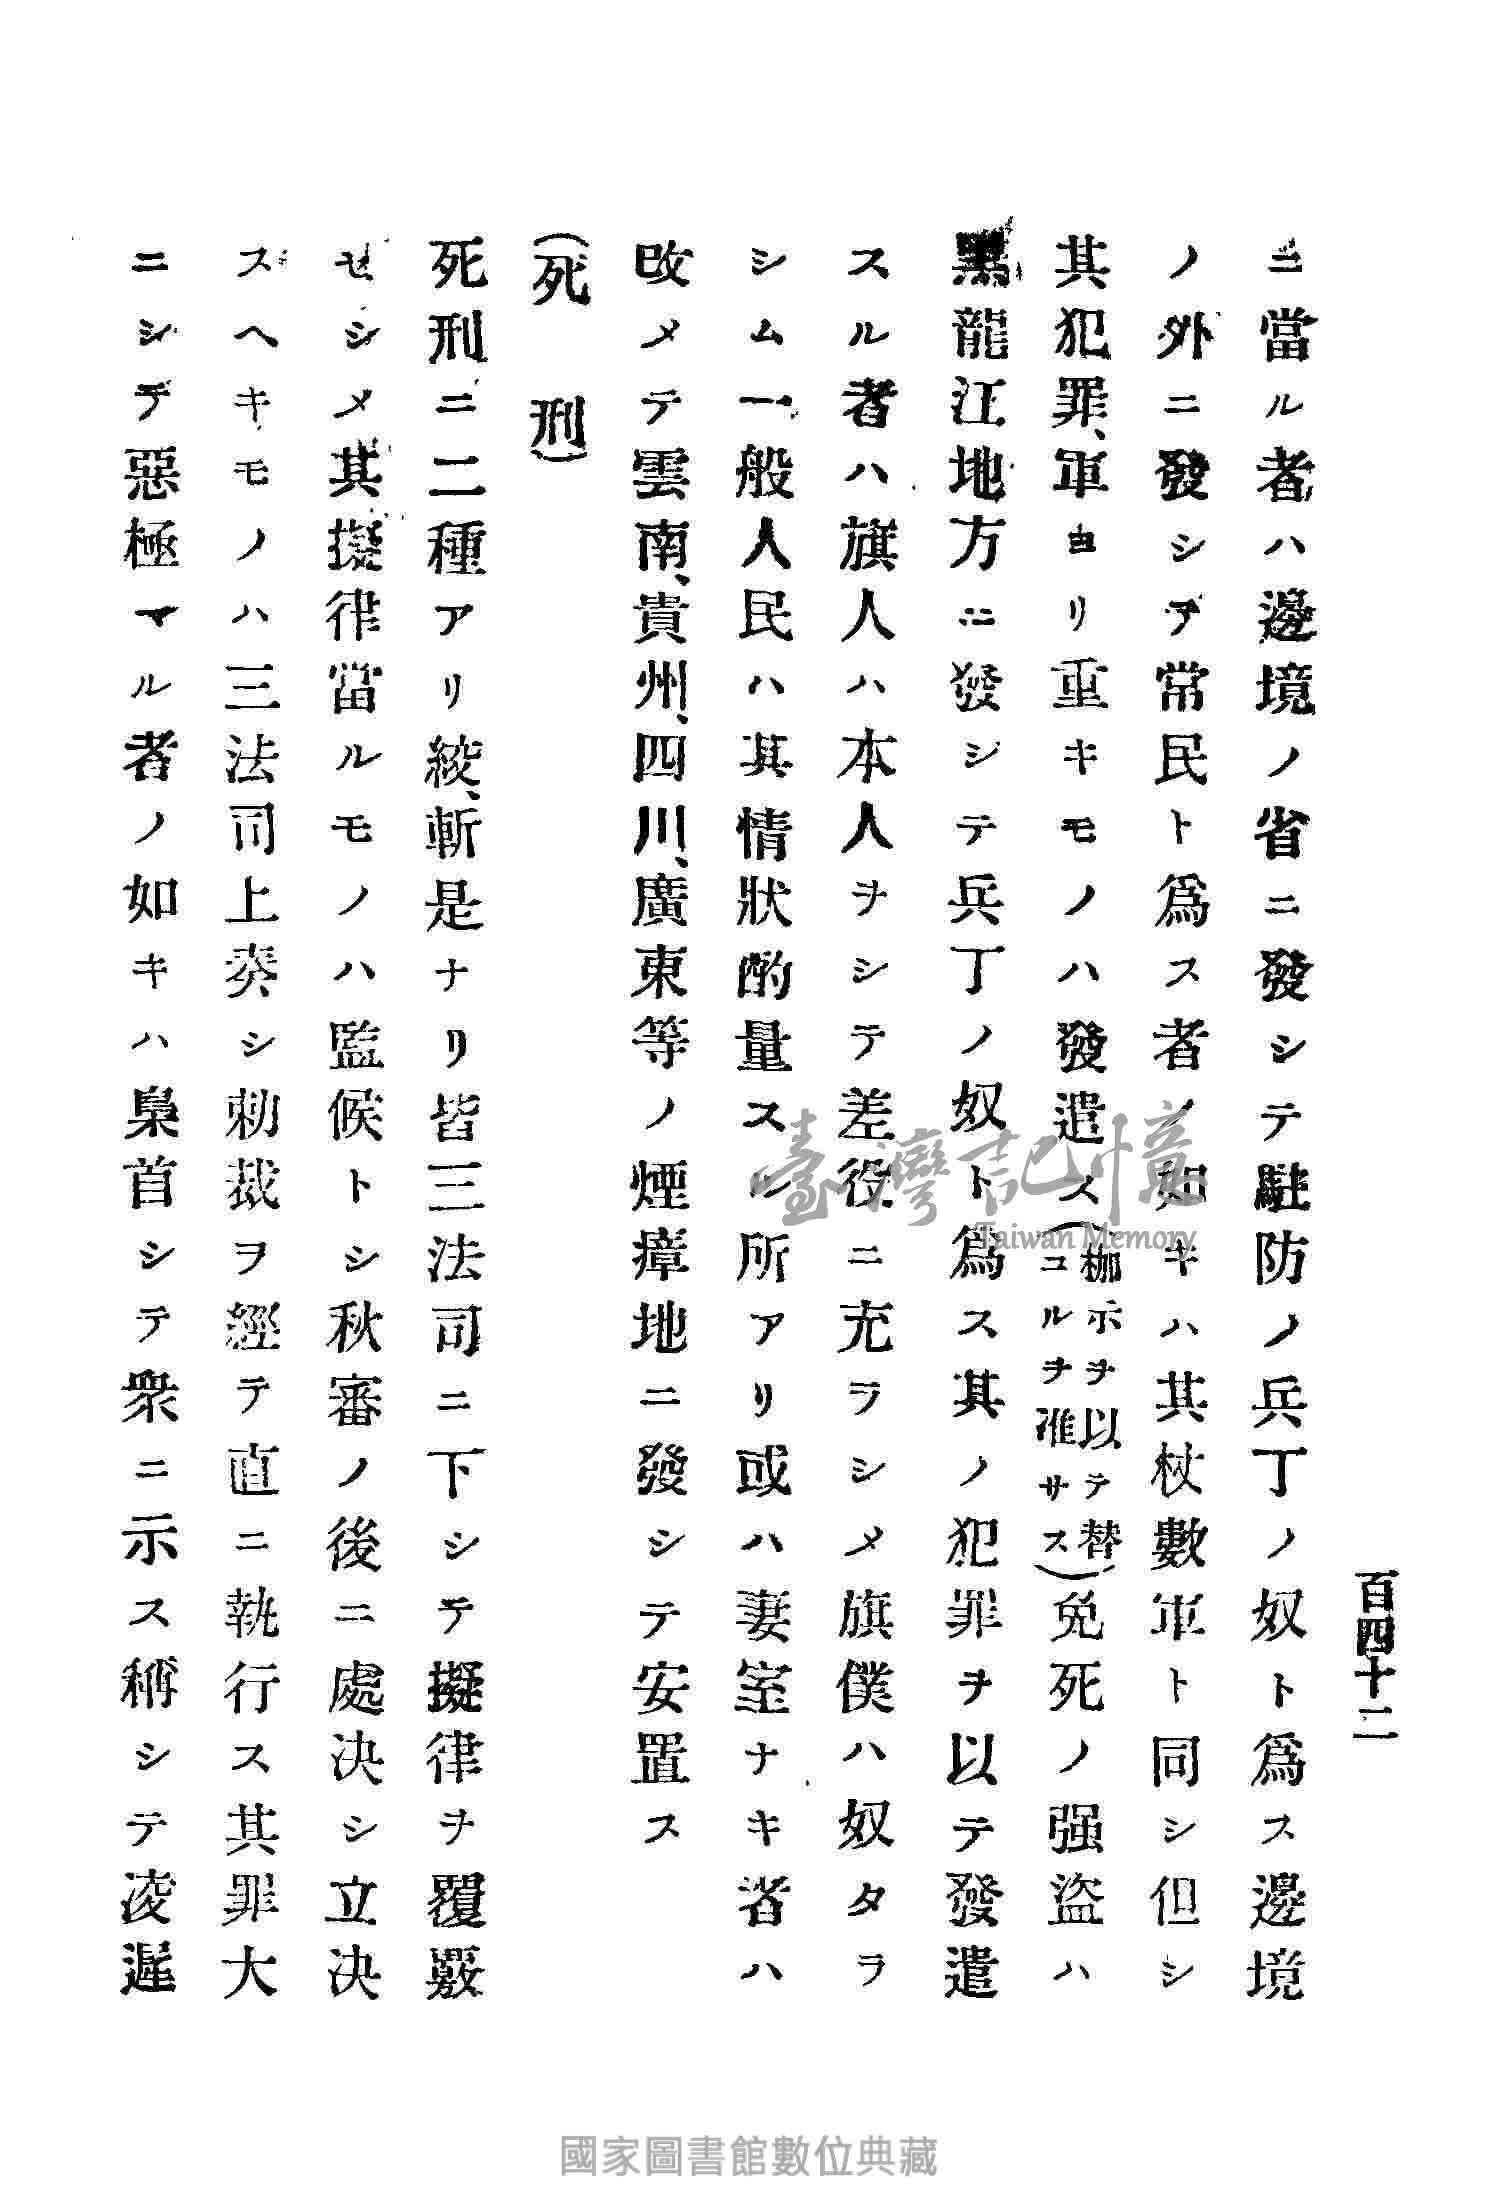 百四十二
ニ當ル者ハ邊境ノ省ニ發シテ駐防ノ兵丁ノ奴ト爲ス邊境
ノ外ニ發シテ常民ト爲ス者ノ如キハ其杖數軍ト同シ但シ
其犯罪、軍ヨリ重キモノハ發遣ス(枷示ヲ以テ替コルヲ准サス)免死ノ强盜ハ
黑龍江地方ニ發シテ兵丁ノ奴ト爲ス其ノ犯罪ヲ以テ發遣
スル者ハ旗人ハ本人ヲシテ差役ニ充ラシメ旗僕ハ奴タラ
シム一般人民ハ其情狀酌量スル所アリ或ハ妻室ナキ者ハ
改メテ雲南、貴州、四川、廣東等ノ煙瘴地ニ發シテ安置ス
(死刑)
死刑ニ二種アリ絞、斬是ナリ皆三法司ニ下シテ擬律ヲ覆覈
セシメ其擬律當ルモノハ監候トシ秋審ノ後ニ處決シ立決
スヘキモノハ三法司上奏シ勅裁ヲ經テ直ニ執行ス其罪大
ニシテ惡極マル者ノ如キハ梟首シテ衆ニ示ス稱シテ凌遲
臺灣記憶
Taiwan Memory
國家圖書館數位典藏